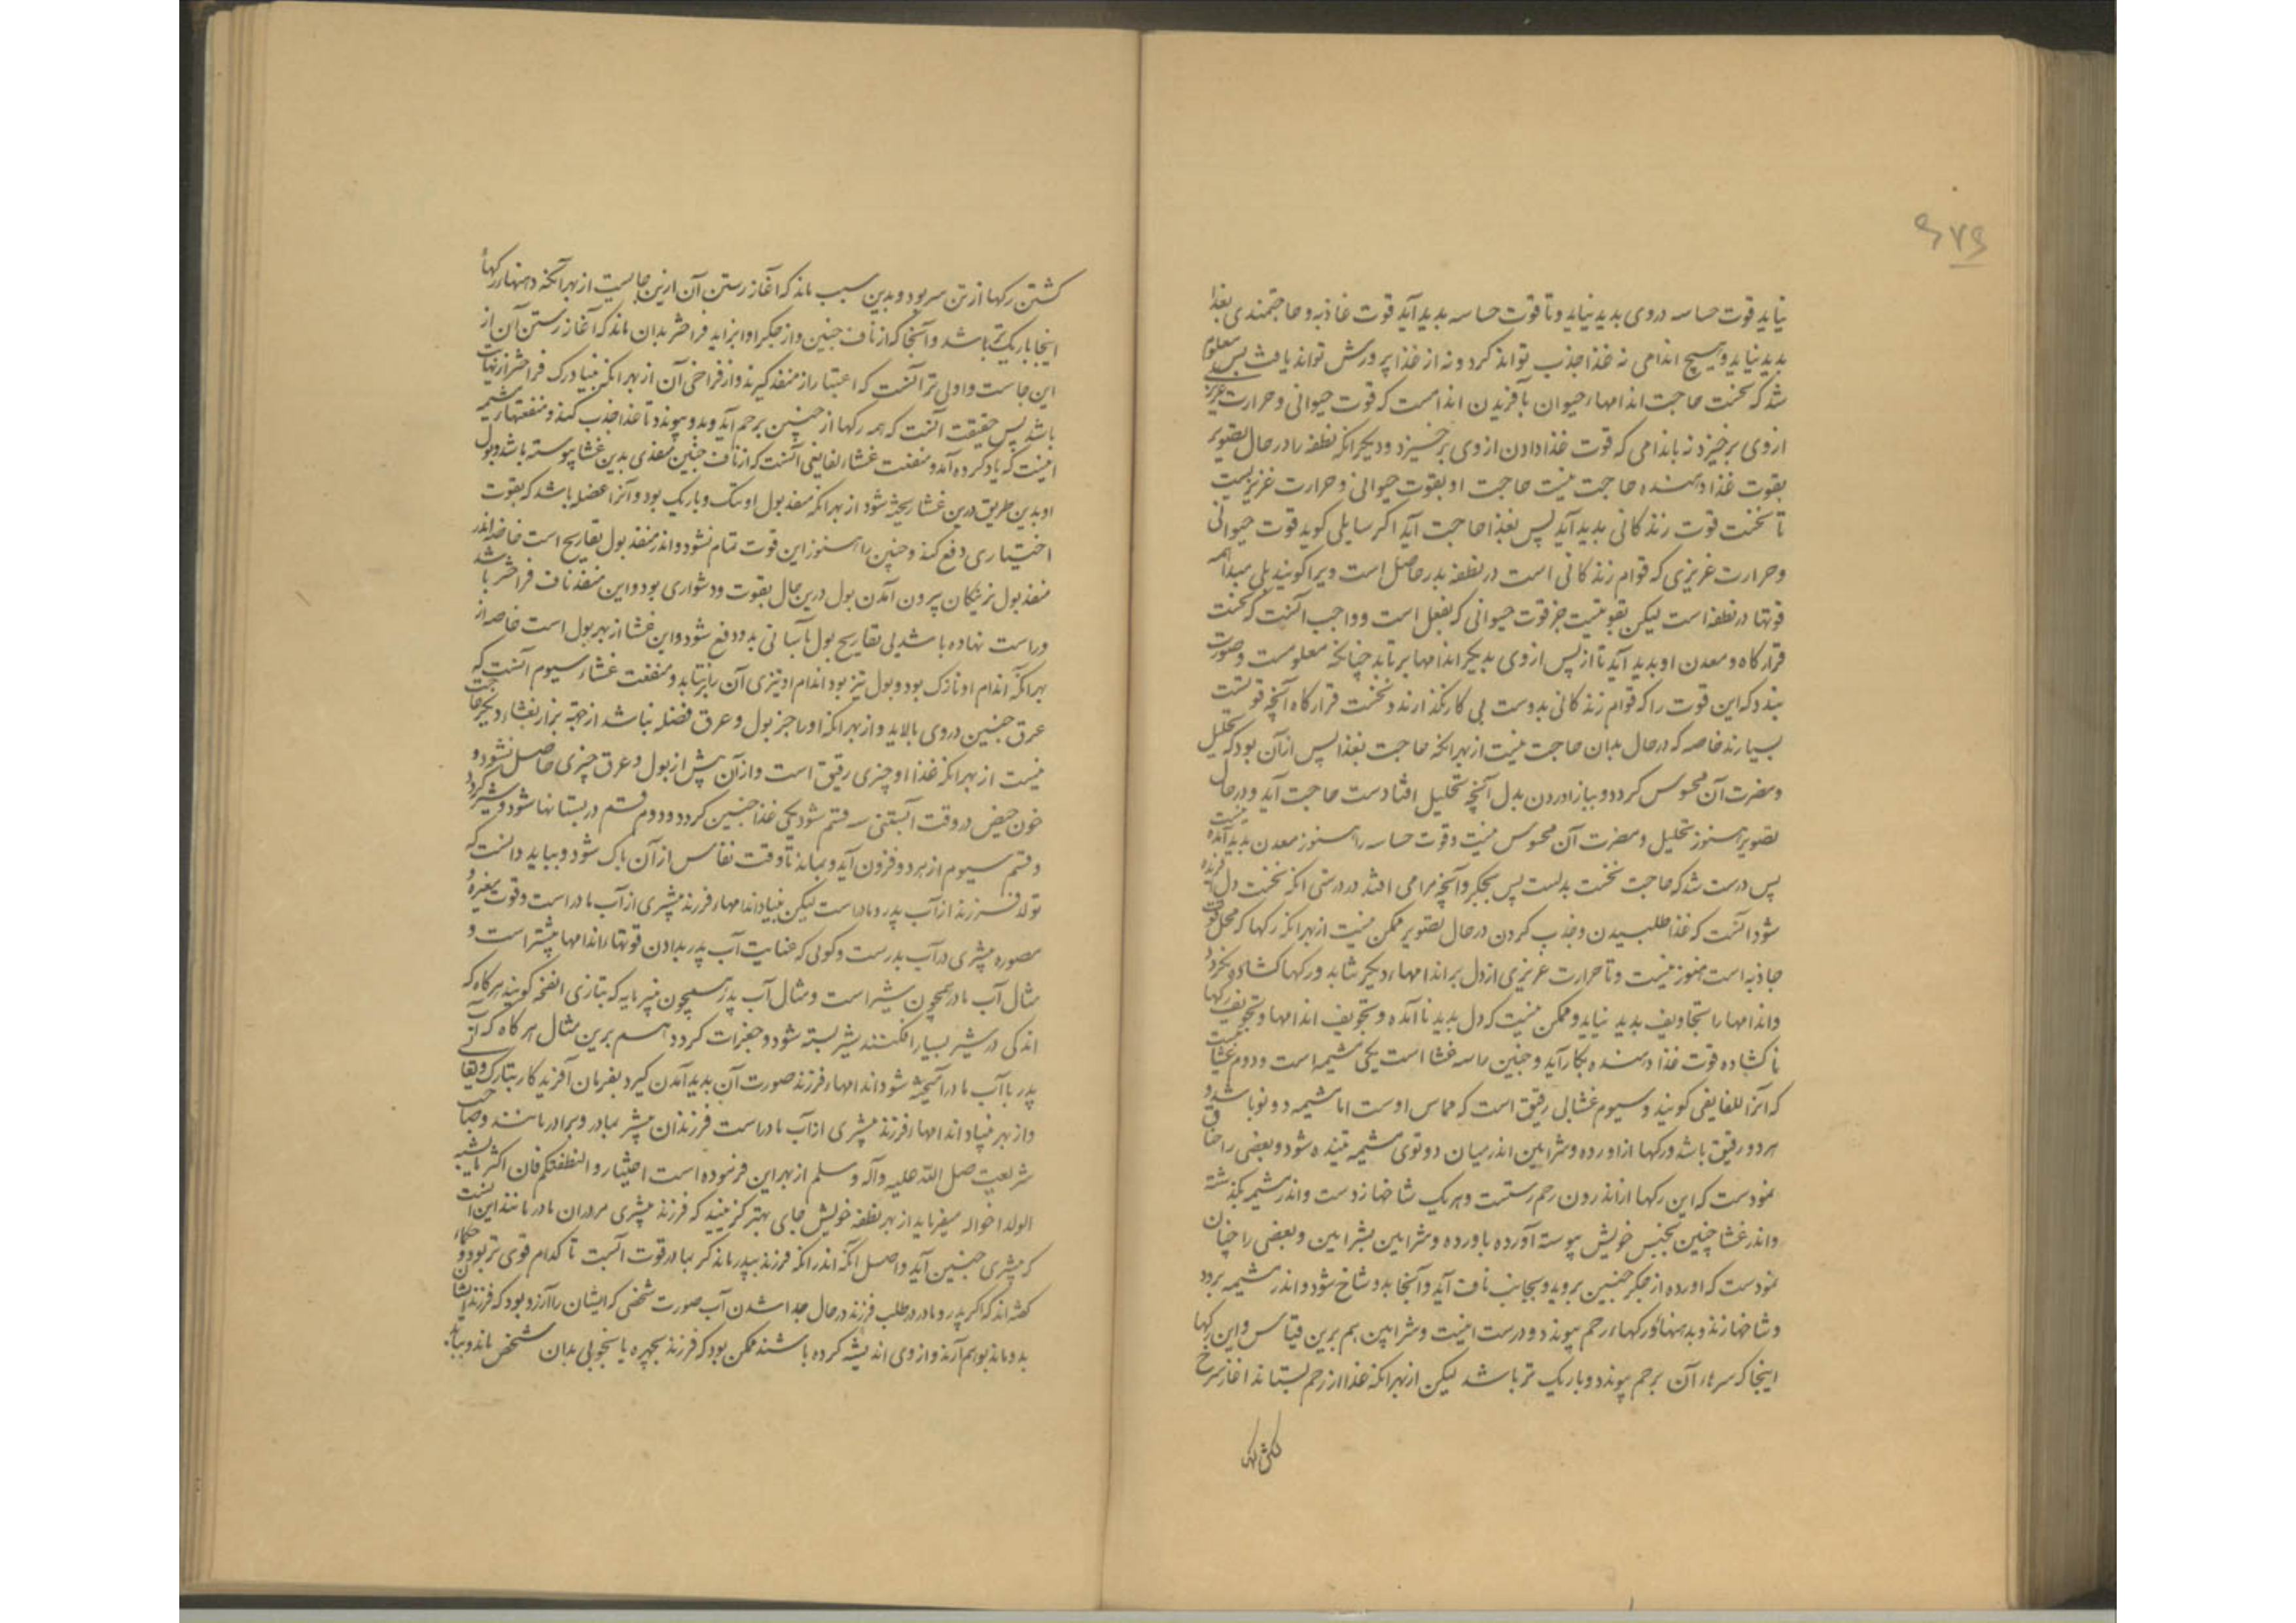 ۶۷۶
نیاید قوت حساسه در وی بدید نیاید و تا قوت حساسه بدید آید قوت غاذیه و حاجتمندی بغذا
بدید نیاید و هیچ اندامی نه غذا جذب تواند کرد و نه از غذا پرورش تواند یافت پس معلوم
شد که نخست حاجت اندامهاء حیوان بآفریدن اندامست که قوت حیوانی و حرارت غریزی
از وی برخیزد نه باندامی که قوت غذا دادن از وی برخیزد و دیگر انکه نطفه را در حال تصویر
بقوت غذا دهنده حاجت نیست حاجت او بقوت حیوانی و حرارت غریزیست
تا نخست قوت زندکانی بدید آید پس بغذا حاجت آید اکر سایلی کوید قوت حیوانی
و حرارت غریزی که قوام زندکانی است در نطفه بدر حاصل است ویرا کویند بلی مبدا همه
قوتها در نطفه است لیکن بقوتیست جز قوت حیوانی که بفعل است و واجب آنست که نخست
قرارکاه و معدن او بدید آید تا از پس از وی بدیکر اندامها برتابد چنانچه معلومست و صورت
نبندد که این قوت را که قوام زندکانی بدوست بی کار نکذارند و نخست قرارکاه آنچه قوتیست
بسپارند خاصه که در حال بدان حاجت نیست از بهر انکه حاجت بغذا پس از آن بود که تحلیل
و مضرت آن محسوس کردد و بباز آوردن بدل آنچه تحلیل افتادست حاجت آید و در حال
تصویر هنوز تحلیل و مضرت آن محسوس نیست و قوت حساسه را هنوز معدن بدید آمده نیست
پس درست شد که حاجت نخست بدلست پس بجکر و آنچه مرا می افتد در درستی انکه نخست دل آفریده
شود آنست که غذا طلبیدن و جذب کردن در حال تصویر ممکن نیست از بهر انکه رکها که محل قوت
جاذبه است هنوز نیست و تا حرارت غریزی از دل بر اندامهاء دیکر نتابد و رکها کشاده نکردد
و اندامها را تجاویف بدید نیاید و ممکن نیست که دل بدید ناآمده و تجویف اندامها و تجویف رکها
ناکشاده قوت غذا دهنده بکار آید و جنین را سه غشا است یکی مشیمه است و دوم غشاییست
که آنرا لفایفی کویند و سیوم غشایی رقیق است که مماس اوست اما مشیمه دو تو باشد و
هر دو رقیق باشد و رکها از اورده و شرایین اندر میان دو توی مشیمه تنیده شود و بعضی را چنان
نمودست که این رکها از اندرون رحم رستست و هر یک شاخها زدست و اندر مشیمه بکذشته
و اندر غشا چنین بجنس خویش پیوسته آورده باورده و شرایین بشرایین و بعضی را چنان
نمودست که اورده از جکر جنین بروید و بجانب ناف آید و آنجا بدو شاخ شود و اندر مشیمه برود
و شاخها زند و بدهنهاء رکهاء رحم پیوندد و درست اینست و شرایین هم برین قیاس و این رکها
اینجا که سرهاء آن برحم پیوندد و باریک تر باشد لیکن از بهر انکه غذا از رحم بستاند آغاز سرخ
کشتن رکها از تن سر بود و بدین سبب ماند که آغاز رستن آن ازین جایست از بهر آنکه دهنهاء رکها
اینجا باریک تر باشد و آنجا که از ناف جنین و از جکر او برآید فراختر بدان ماند که آغاز رستن آن از
این جاست و اولی تر آنست که اعتبار از منفذ کیرند و از فراخی آن از بهر انکه بنیاد رک فراختر از نهایت
باشد پس حقیقت آنست که همه رکها از جنین برحم آید و بدو پیوندد تا غذا جذب کند و منفعتهاء مشیمه
اینست که یاد کرده آمد و منفعت غشاء لفایفی آنست که از ناف جنین منفذی بدین غشا پیوسته باشد و بول
او بدین طریق درین غشا ریخته شود از بهر انکه منفذ بول او تنک و باریک بود و آنرا عضله باشد که بقوت
اختیاری دفع کند و جنین را هنوز این قوت تمام نشود و اندر منفذ بول تعاریج است خاصه اندر
منفذ بول نرینکان بیرون آمدن بول درین حال بقوت و دشواری بود و این منفذ ناف فراختر باشد
و راست نهاده باشد بی تعاریج بول بآسانی بدو دفع شود و این غشا از بهر بول است خاصه از
بهر انکه اندام او نازک بود و بول تیز بود اندام او تیزی آن را برنتابد و منفعت غشاء سیوم آنست که
عرق جنین در وی بالاید و از بهر انکه او را جز بول و عرق فضله نباشد از جهة براز بغشاء دیکر حاجت
نیست از بهر انکه غذا او چیزی رقیق است و از آن بیش از بول و عرق چیزی حاصل نشود و
خون حیض در وقت آبستنی سه قسم شود یکی غذا جنین کردد و دوم قسم در بستانها شود و شیر کردد
و قسم سیوم از هر دو فزون آید و بماند تا وقت نفاس از آن پاک شود و بباید دانست که
تولد فرزند از آب پدر و مادر است لیکن بنیاد اندامهاء فرزند بیشتری از آب مادر است و قوت مغیره و
مصوره بیشتری در آب پدرست و کویی که عنایت آب پدر بدادن قوتها را اندامها بیشتر است و
مثال آب مادر همچون شیر است و مثال آب پدر همچون پنیرمایه که بتازی انفحه کویند هرکاه که
اندکی در شیر بسیار افکنند شیر بسته شود و جغرات کردد هم برین مثال هرکاه که آب
پدر با آب مادر آمیخته شود اندامهاء فرزند صورت آن بدید آمدن کیرد بفرمان آفریدکار تبارک و تعالی
و از بهر بنیاد اندامهاء فرزند بیشتری از آب مادر است فرزندان بیشتر بمادر و برادر مانند و صاحب
شریعت صلی الله علیه و آله و سلم از بهر این فرموده است اختیاروا لنطفتکم فان اکثر ما یشبه
الولد اخواله میفرماید از بهر نطفه خویش جای بهتر کزینید که فرزند بیشتری برادران مادر مانند این است
که بیشتری چنین آید و اصل انکه اندر انکه فرزند بپدر ماند کر بمادر قوت آنست تا کدام قوی تر بود و حکماء
کفته اند که اکر پدر و مادر در طلب فرزند در حال جدا شدن آب صورت شخصی که ایشان را آرزو بود که فرزند ایشان
بدو ماند بوهم آرند و از وی اندیشه کرده باشند ممکن بود که فرزند بچهره یا بخوبی بدان شخص ماند و بباید